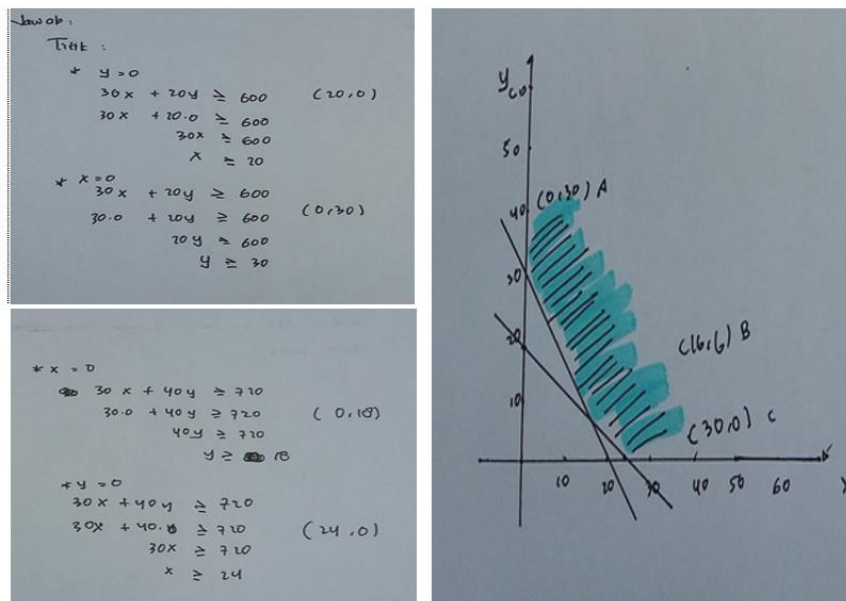 Jawab :
Titik :
* y = 0
30x + 20y ≥ 600 (20,0)
30x + 20.0 ≥ 600
30x ≥ 600
x ≥ 20
* x = 0
30x + 20y ≥ 600
30.0 + 20y ≥ 600 (0,30)
20y ≥ 600
y ≥ 30
* x = 0
30x + 40y ≥ 720
30.0 + 40y ≥ 720 (0,18)
40y ≥ 720
y ≥ 18
* y = 0
30x + 40y ≥ 720
30x + 40.0 ≥ 720 (24,0)
30x ≥ 720
x ≥ 24
y
60
50
40
(0,30) A
30
20
(16,6) B
10
(30,0) C
10 20 30 40 50 60
x